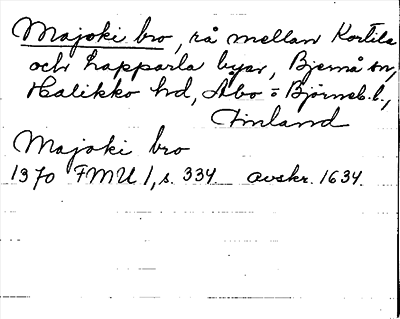 Majoki bro, rå mellan Kortila
och Lapparla byar, Bjernå sn,
Halikko hd, Åbo o Björneb. l.,
Finland
Majoki bro
1370 FMU 1, s. 334 avskr. 1634.